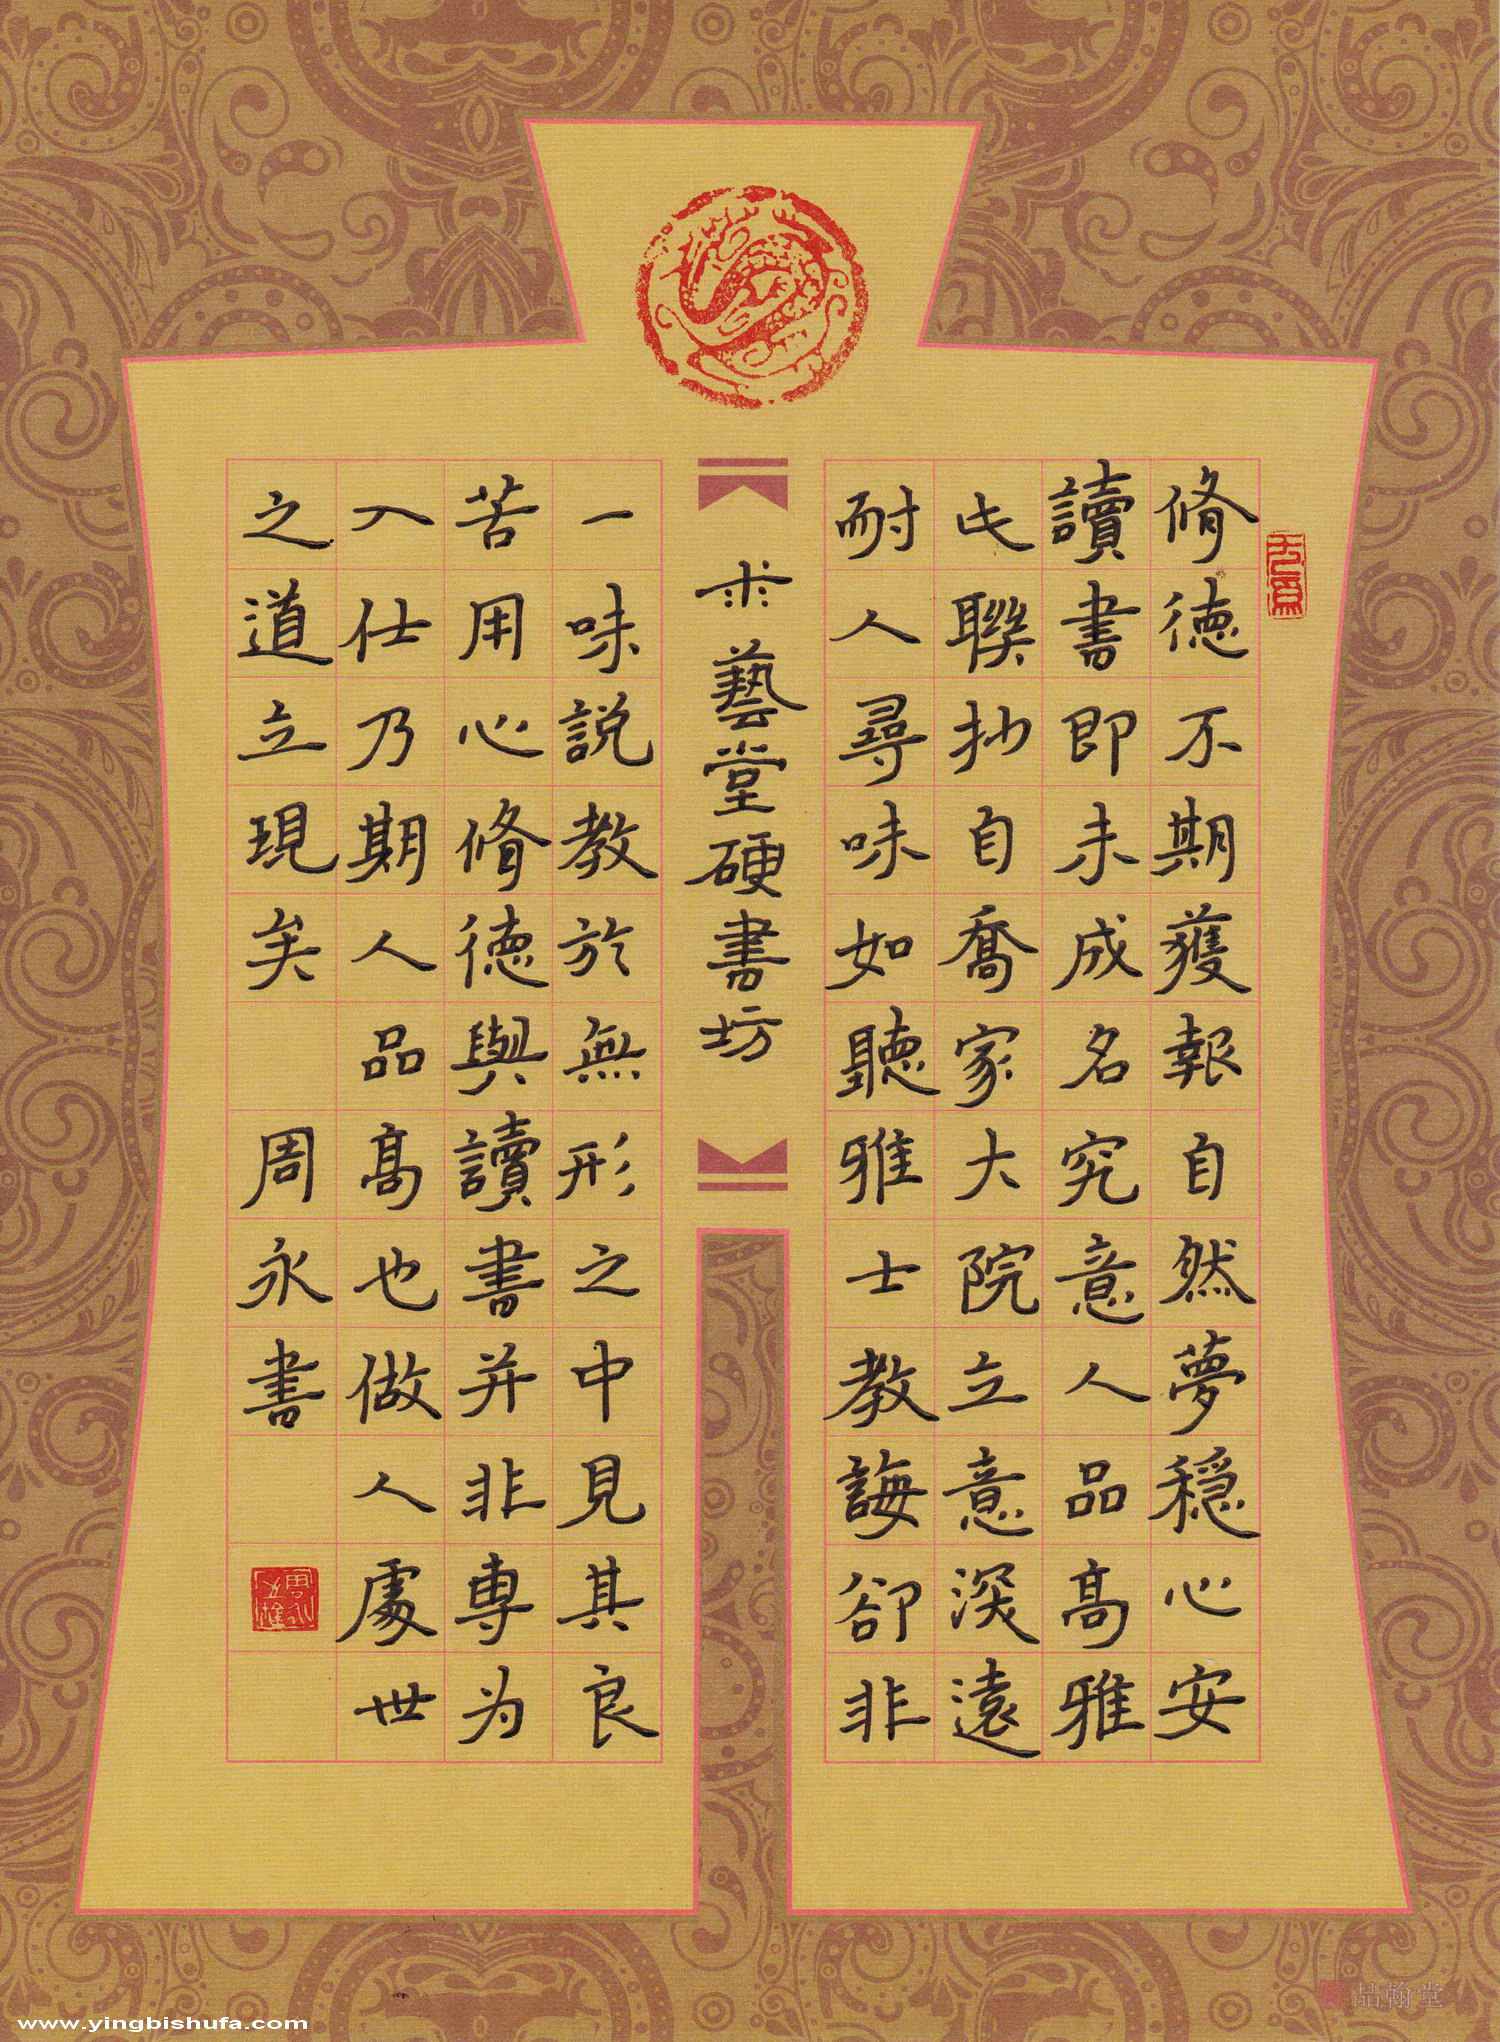 脩德不期獲報自然夢穩心安
讀書即未成名究意人品高雅
此聯抄自喬家大院立意深遠
耐人尋味如聽雅士教誨卻非
求藝堂硬書坊
一味說教於無形之中見其良
苦用心脩德與讀書并非專为
入仕乃期人品高也做人處世
之道立現矣 周永書
www.yingbishufa.com
品翰堂